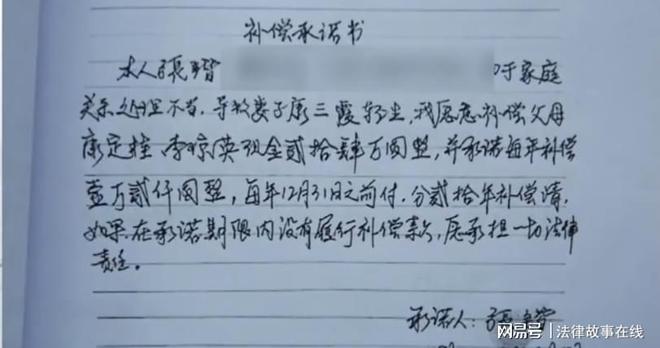 补偿承诺书
本人張 对于家庭
关系处理不当,导致妻子康三霞轻生,我愿意补偿父母
康定柱 李琼英现金贰拾肆万圆整,并承诺每年补偿
壹万贰仟圆整,每年12月31日之前付,分贰拾年补偿清,
如果在承诺期限内没有履行补偿款,愿承担一切法律
责任。
承诺人:張
网易号 | 法律故事在线